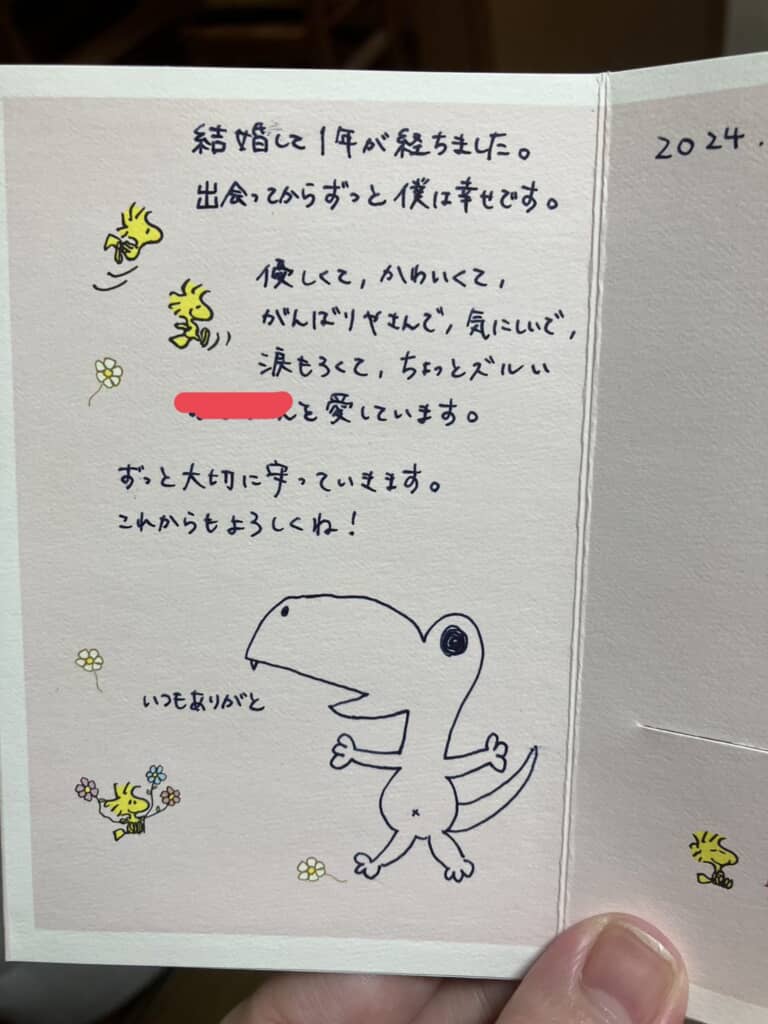 結婚して1年が経ちました。
出会ってからずっと僕は幸せです。
優しくて,かわいくて,
がんばりやさんで,気にしいで,
涙もろくて,ちょっとズルい
んを愛しています。
ずっと大切に守っていきます。
これからもよろしくね!
いつもありがと
2024.